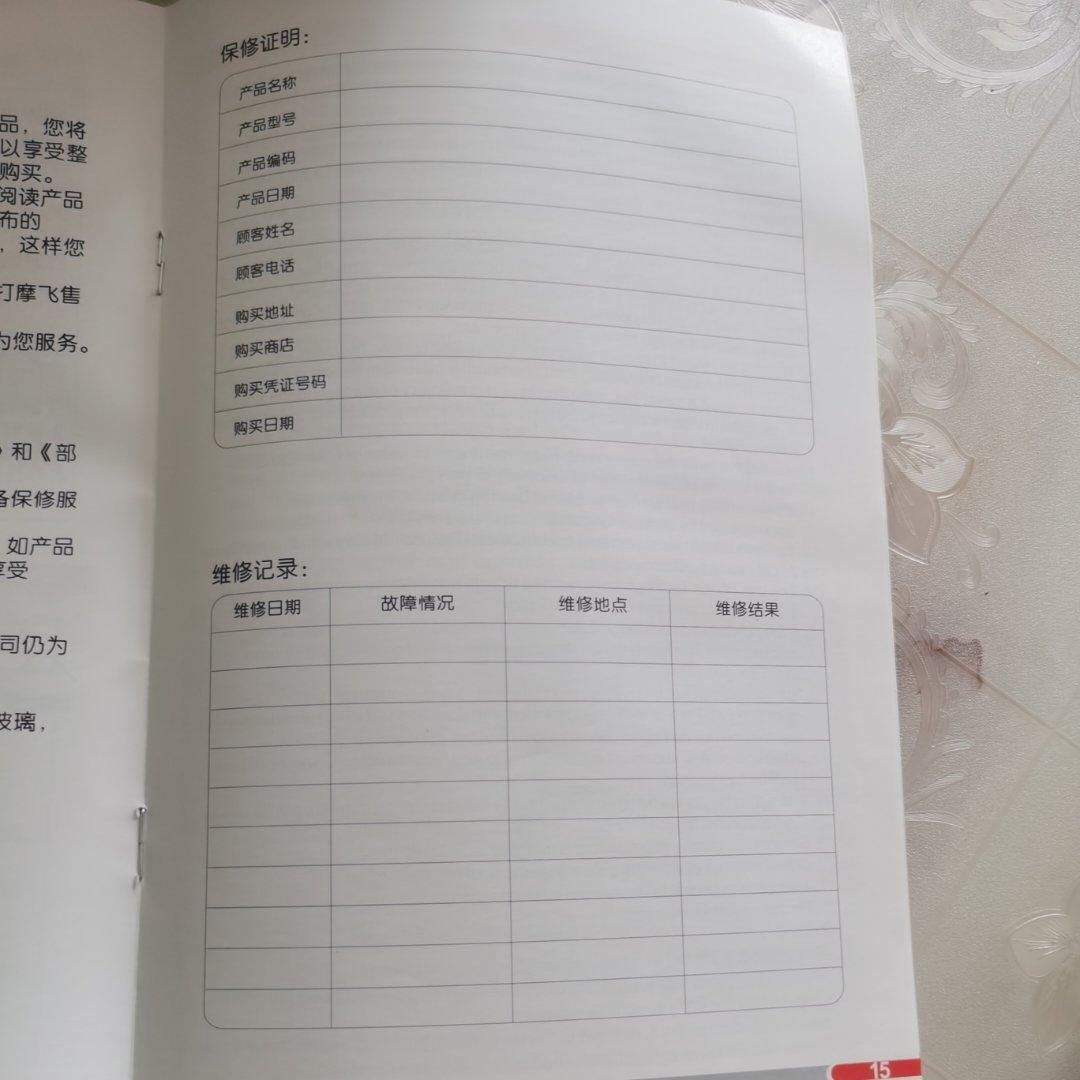 品，您将
以享受整
购买。
阅读产品
布的
，这样您
打摩飞售
为您服务。
》和《部
备保修服
如产品
享受
司仍为
玻璃，
保修证明：
产品名称
产品型号
产品编码
产品日期
顾客姓名
顾客电话
购买地址
购买商店
购买凭证号码
购买日期
维修记录：
维修日期 故障情况 维修地点 维修结果
15